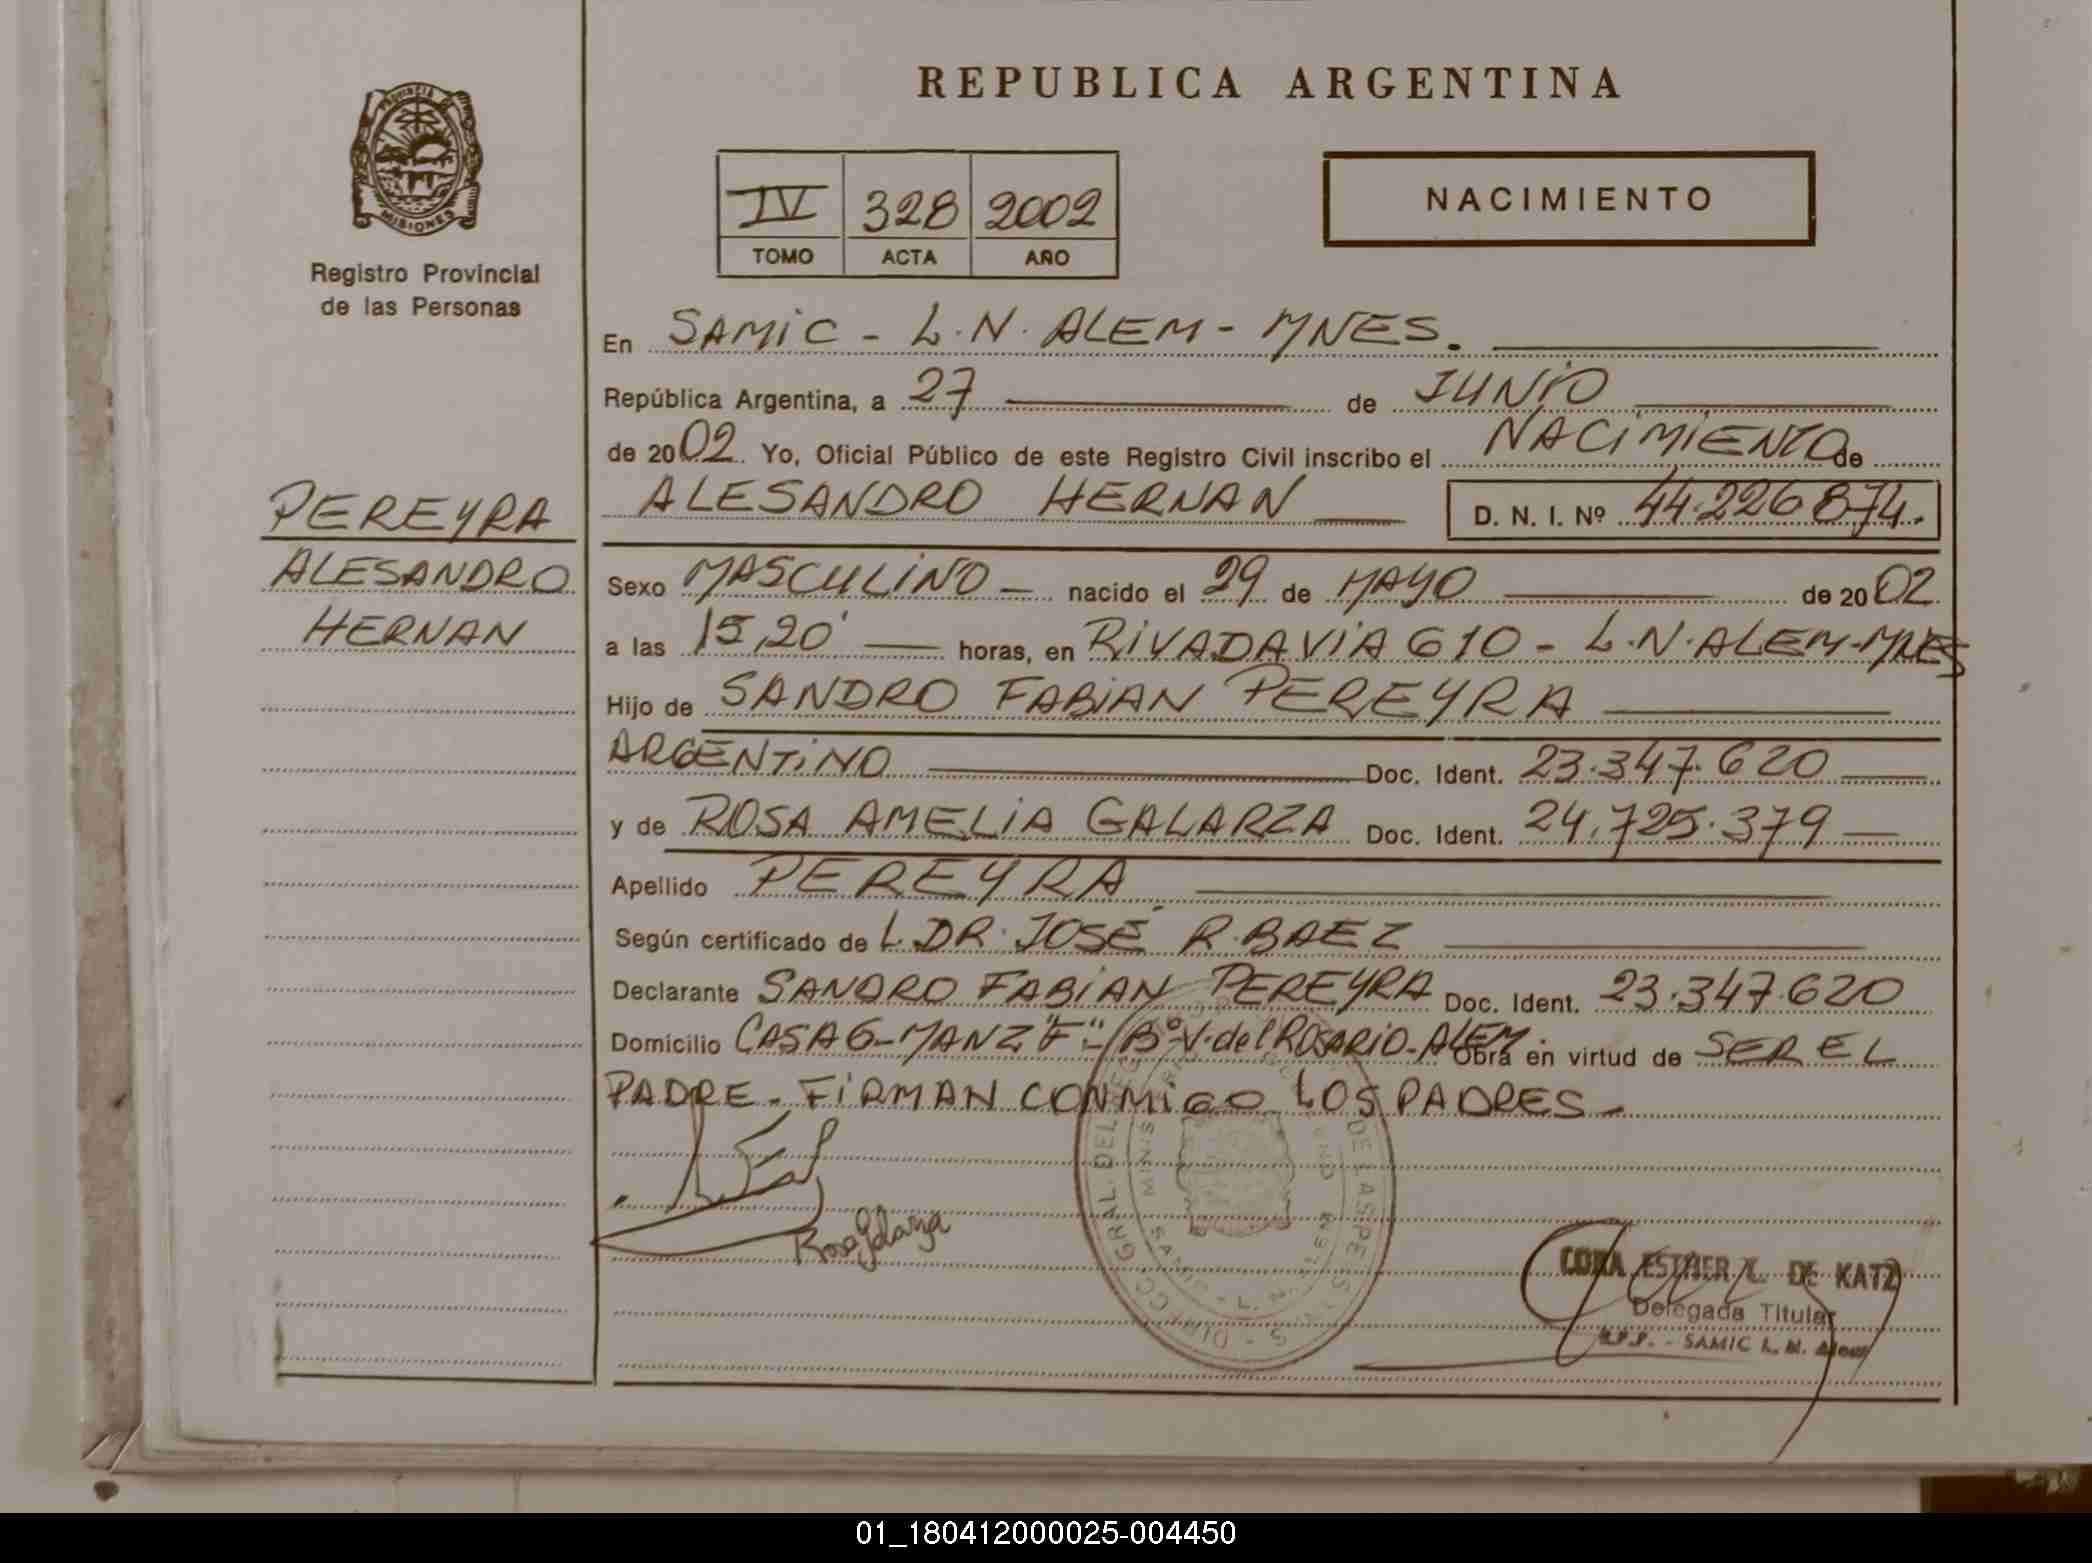 REPUBLICA ARGENTINA
PROVINCIA DE
MISIONES
Registro Provincial
de las Personas
IV 328 2002
TOMO ACTA AÑO
NACIMIENTO
En SAMIC - L.N. ALEM - MNES.
República Argentina, a 27 de JUNIO
de 2002. Yo, Oficial Público de este Registro Civil inscribo el NACIMIENTO de
ALESANDRO HERNAN D. N. I. Nº 44.226874.
PEREYRA
ALESANDRO
HERNAN
Sexo MASCULINO - nacido el 29 de MAYO de 2002.
a las 15,20' horas, en RIVADAVIA 610 - L.N. ALEM-MNES
Hijo de SANDRO FABIAN PEREYRA
ARGENTINO Doc. Ident. 23.347.620
y de ROSA AMELIA GALARZA Doc. Ident. 24.725.379
Apellido PEREYRA
Según certificado de L. DR. JOSÉ R. BAEZ
Declarante SANDRO FABIAN PEREYRA Doc. Ident. 23.347.620
Domicilio CASA 6-MANZ"F"-Bº V. del ROSARIO-ALEM. Obra en virtud de SER EL
PADRE - FIRMAN CONMIGO LOS PADRES -
Rosa Galarza
CORA ESTHER L. DE KATZ
Delegada Titular
R.P.P. - SAMIC L. N. Alem
01_180412000025-004450